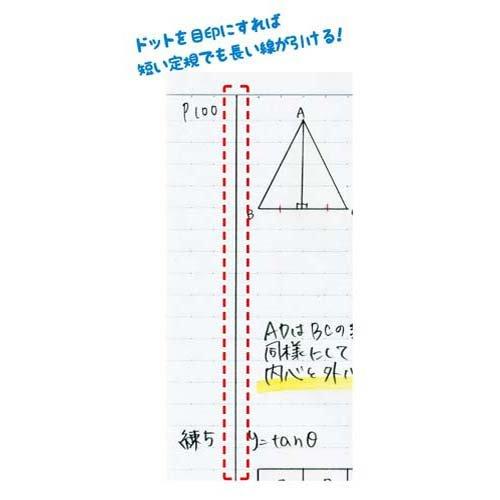 ドットを目印にすれば
短い定規でも長い線が引ける!
P100
A
B
ADはBCの
同様にして
内心と外
練5 y=tanθ